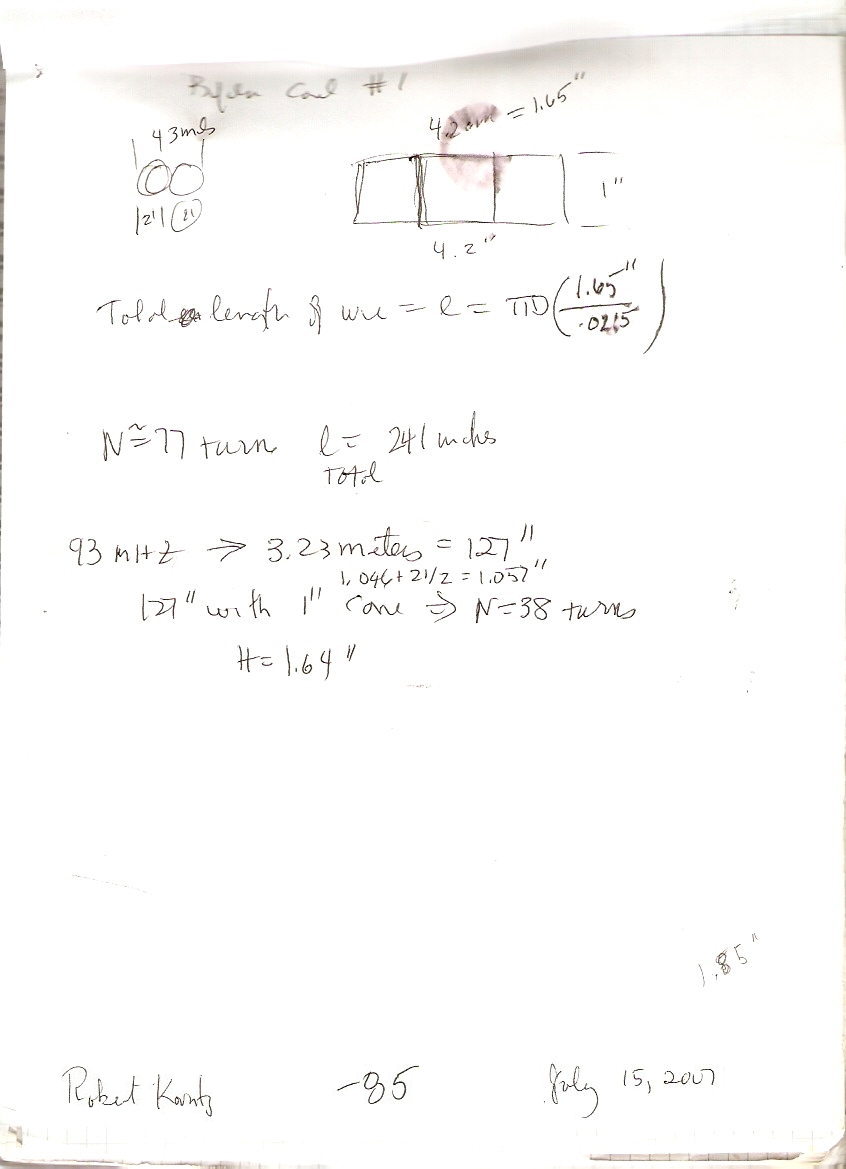 Coil #1
43 mils
4.2 cm = 1.65"
|21| (21)
1"
4.2"
Total length of wire = l = πD(1.65"/.0215)
N ≅ 77 turn l = 241 inches
Total
93 MHZ → 3.23 meters = 127"
1.046 + 21/2 = 1.057"
127" with 1" Core ⇒ N=38 turns
H = 1.64"
1.85"
Robert -85 July 15, 2007